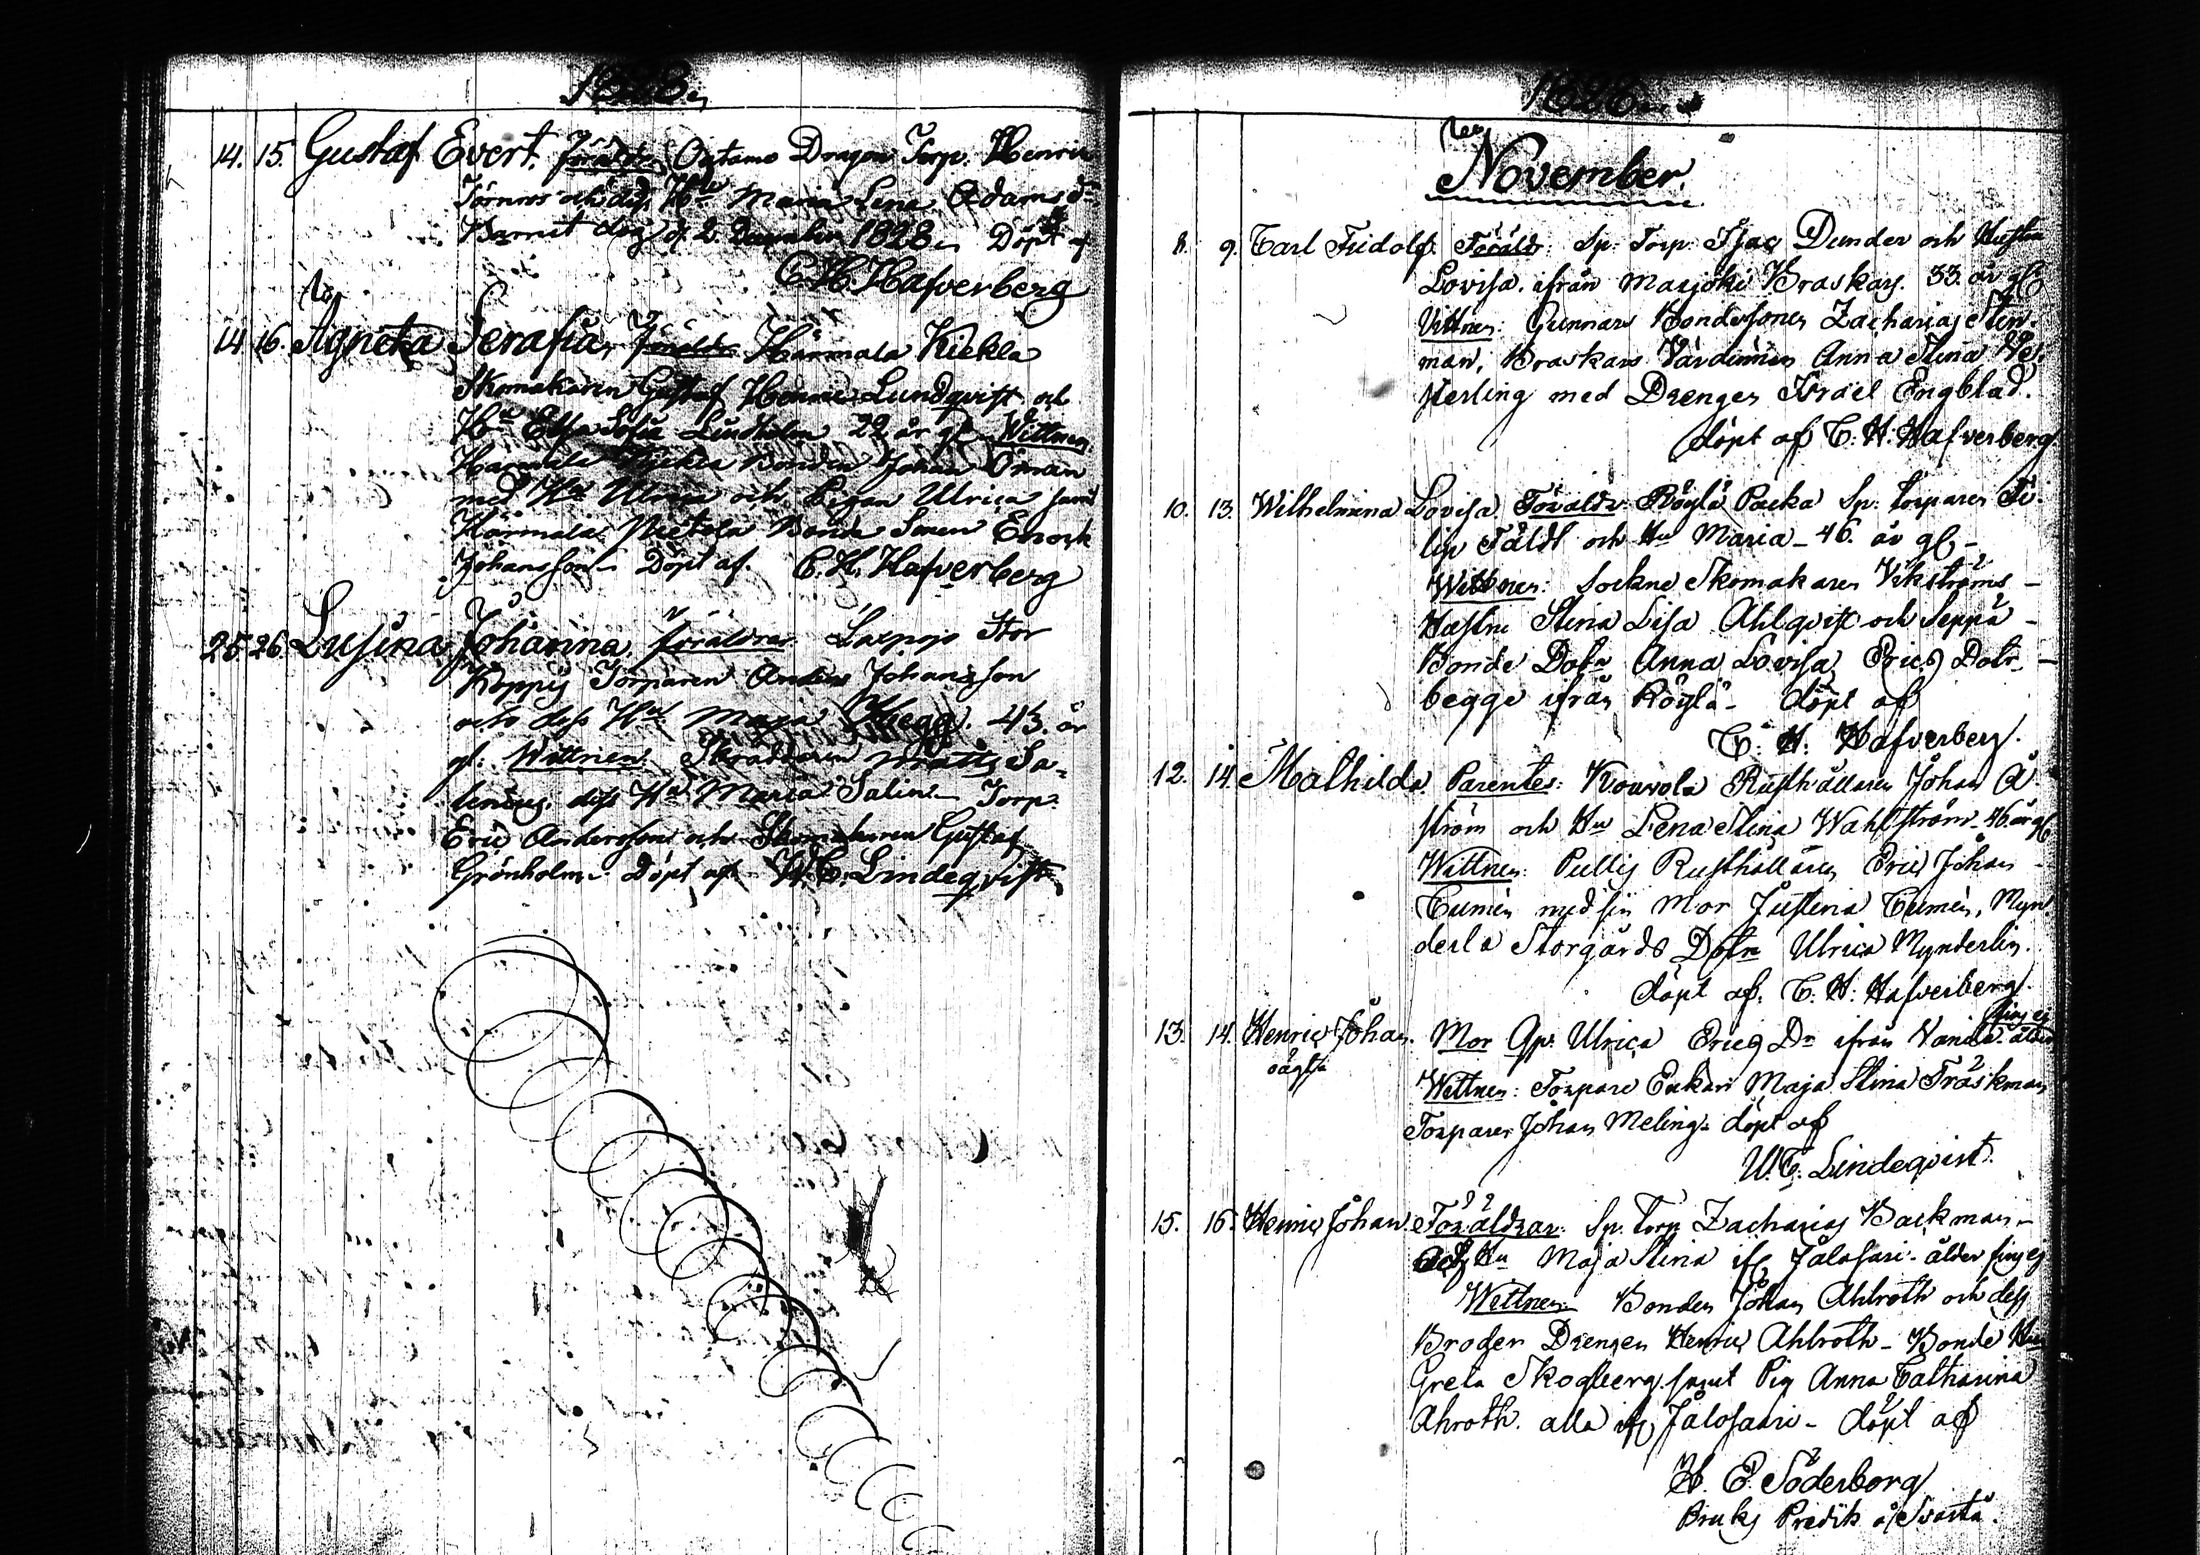 1828.
14. 15. Gustaf Evert. föräldr. Dragon Torp. Henric
Törnros och dess Hu Maria Lena Adamsdr
Barnet dog d. 2. December 1828. Döpt af
C. H. Hafverberg
14. 16. Agneta Serafia, föräldr. Härmälä Kiekla
Skomakaren Gustaf Henric Lundqvist och
Hu Lindholm 22 år gl. Wittnen
Bonden Johan Öman
med Hu Ulrica och Pigan Ulrica samt
Härmälä Bonde Sonen Enock
Johansson. Döpt af. C. H. Hafverberg
25. 26. Lusina Johanna. föräldrar Laxpojo Stor
Koppis Torparen Anders Johansson
och dess Hu Maja 43. år
gl. Wittnen. Skräddaren Matts Sa-
lenius, dess Hu Maria Salin. Torp.
Eric Andersson och Skomakaren Gustaf
Grönholm. Döpt af W. C. Lindeqvist
1828.
November.
8. 9. Carl Fridolf. Föräldr: Sp. Torp. Isac Dunder och Hustru
Lovisa. ifrån Marjoki Braskars. 33. år gl.
Vittnen: Gunnars Bondesonen Zacharias Sten-
man, Braskars Värdinnan Anna Stina Wes-
terling med Drengen Israel Engblad.
döpt af C. H. Hafverberg.
10. 13. Wilhelmina Lovisa. Föräldr: Röglä Packa Sp. torparen Fi-
lip Fäldt och Hu Maria - 46. år gl -
Wittnen: Sockne Skomakaren Vikströms -
Hustru Stina Lisa Ahlqvist och Seppä -
Bonde Dotn Anna Lovisa Erics Dotr. -
begge ifrån Röglä - döpt af
C. H. Hafverberg.
12. 14. Mathilda. Parentes: Kouvola Rusthållaren Johan Å-
ström och Hu Lena Stina Wahlström. 46 år gl.
Wittnen: Pullis Rusthållaren Eric Johan
Cumén med sin Mor Justina Cumén, Myn-
derla Storgårds Dotn Ulrica Mynderlin.
döpt af. C. H. Hafverberg.
13. 14. Henric Johan. Mor Qp. Ulrica Erics Dr ifrån Nandla. ålder fins ej
oägta
Wittnen: Torpare Enkan Maja Stina Träskman
Torparen Johan Meling - döpt af
W. C. Lindeqvist.
15. 16. Henric Johan. Föräldrar: Sp. Torp. Zacharias Backman -
och Hu Maja Stina ifr. Jalosari - ålder fins ej
Wittnen: Bonden Johan Ahlroth och dess
Broder Drengen Henric Ahlroth - Bonde Hu
Greta Skogberg samt Pig. Anna Catharina
Ahroth. alla ifr. Jalosaari - döpt af
H. E. Söderborg
Bruks Predik. å Svartå.